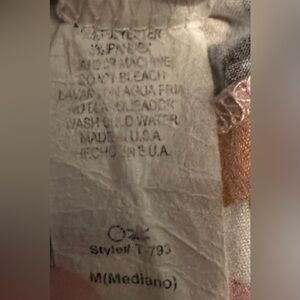 POLYESTER
SPANDEX
HAND OR MACHINE
DO NOT BLEACH
LAVAR CON AGUA FRIA
WASH COLD WATER
MADE IN U.S.A.
HECHO EN E.U.A.
Style# T-793
M(Mediano)